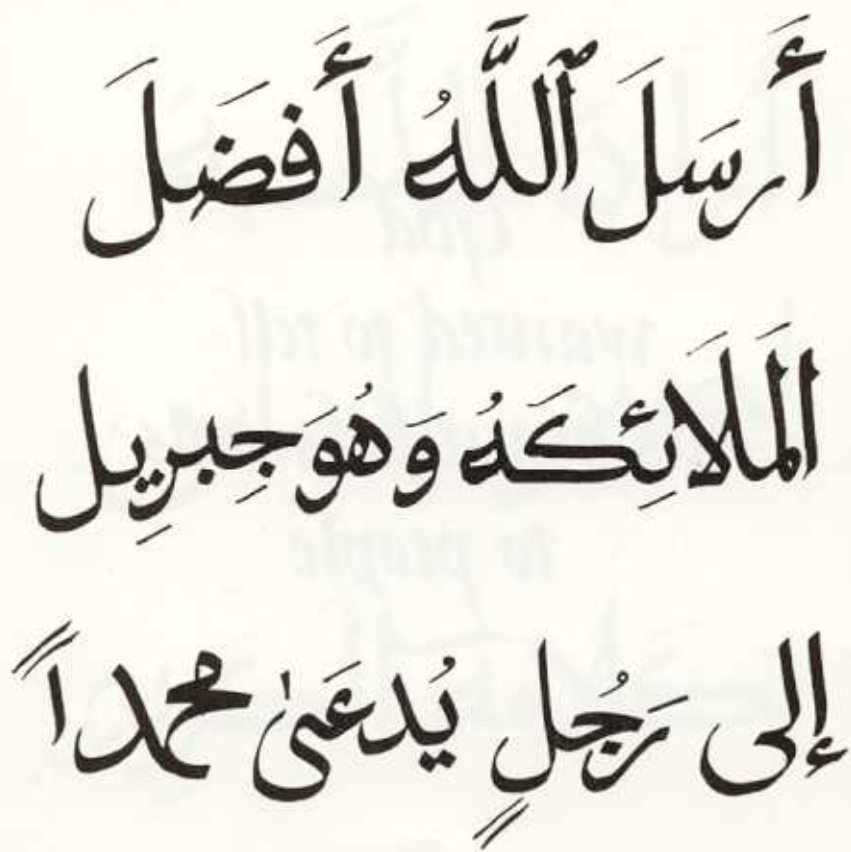 أَرسَلَ ٱللَّهُ أَفضَلَ
المَلَائِكَهُ وَهُوَ جِبرِيل
إلى رَجُلٍ يُدعَىٰ محمداً